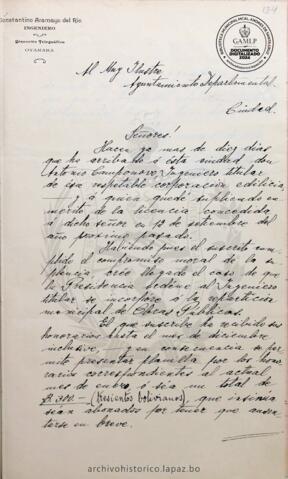 Constantino Aramayo del Rio
INGENIERO
Dirección Telegráfica
OYAMARA
134
BIBLIOTECA MUNICIPAL
GAMLP
DOCUMENTO
DIGITALIZADO
2024
Al Muy Ilustre
Ayuntamiento Departamental
Ciudad.
Señores!
Hacen ya mas de diez dias
que ha arribado á ésta ciudad don
Antonio Camponovo, Ingeniero titular
de esa respetable corporación edilicia,
á quien quedé supliendo en
mérito de la licencia concedida
á dicho señor en 12 de setiembre del
año próximo pasado.
Habiendo pues el suscrito cum-
plido el compromiso moral de la su-
plencia, cree llegado el caso de que
la Presidencia ordene al Ingeniero
titular se incorpore á la repartición
municipal de Obras Públicas.
El que suscribe ha recibido sus
honorarios hasta el mes de diciembre
inclusive y en consecuencia se per-
mite presentar planilla por los hono-
rarios correspondientes al actual
mes de enero, ó sea un total de
300.— (trescientos bolivianos), que
sean abonados por tener que ausen-
tarse en breve.
archivohistorico.lapaz.bo